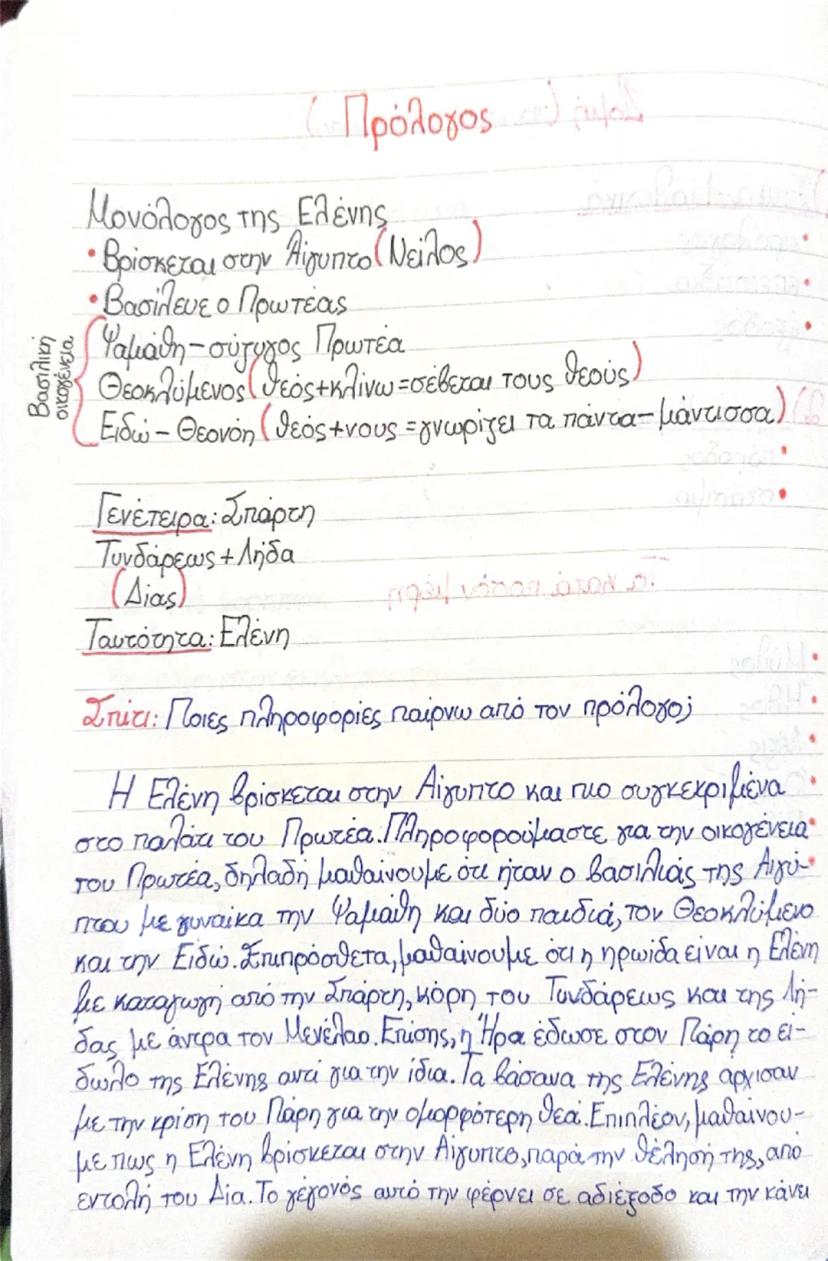 Πρόλογος
Μονόλογος της Ελένης
• Βρίσκεται στην Αίγυπτο (Νείλος)
• Βασίλευε ο Πρωτέας
Βασιλική οικογένεια
Ψαμάθη – σύζυγος Πρωτέα
Θεοκλύμενος (θεός+κλίνω=σέβεται τους θεούς)
Ειδώ – Θεονόη (θεός+νους=γνωρίζει τα πάντα–μάντισσα)
Γενέτειρα: Σπάρτη
Τυνδάρεως + Λήδα
(Δίας)
Ταυτότητα: Ελένη
Σπίτι: Ποιες πληροφορίες παίρνω από τον πρόλογο;
Η Ελένη βρίσκεται στην Αίγυπτο και πιο συγκεκριμένα
στο παλάτι του Πρωτέα. Πληροφορούμαστε για την οικογένεια
του Πρωτέα, δηλαδή μαθαίνουμε ότι ήταν ο βασιλιάς της Αιγύ-
πτου με γυναίκα την Ψαμάθη και δύο παιδιά, τον Θεοκλύμενο
και την Ειδώ. Επιπρόσθετα, μαθαίνουμε ότι η ηρωίδα είναι η Ελένη
με καταγωγή από την Σπάρτη, κόρη του Τυνδάρεως και της Λή-
δας με άντρα τον Μενέλαο. Επίσης, η Ήρα έδωσε στον Πάρη το εί-
δωλο της Ελένης αντί για την ίδια. Τα βάσανα της Ελένης άρχισαν
με την κρίση του Πάρη για την ομορφότερη θεά. Επιπλέον, μαθαίνου-
με πως η Ελένη βρίσκεται στην Αίγυπτο, παρά την θέλησή της, από
εντολή του Δία. Το γεγονός αυτό την φέρνει σε αδιέξοδο και την κάνει